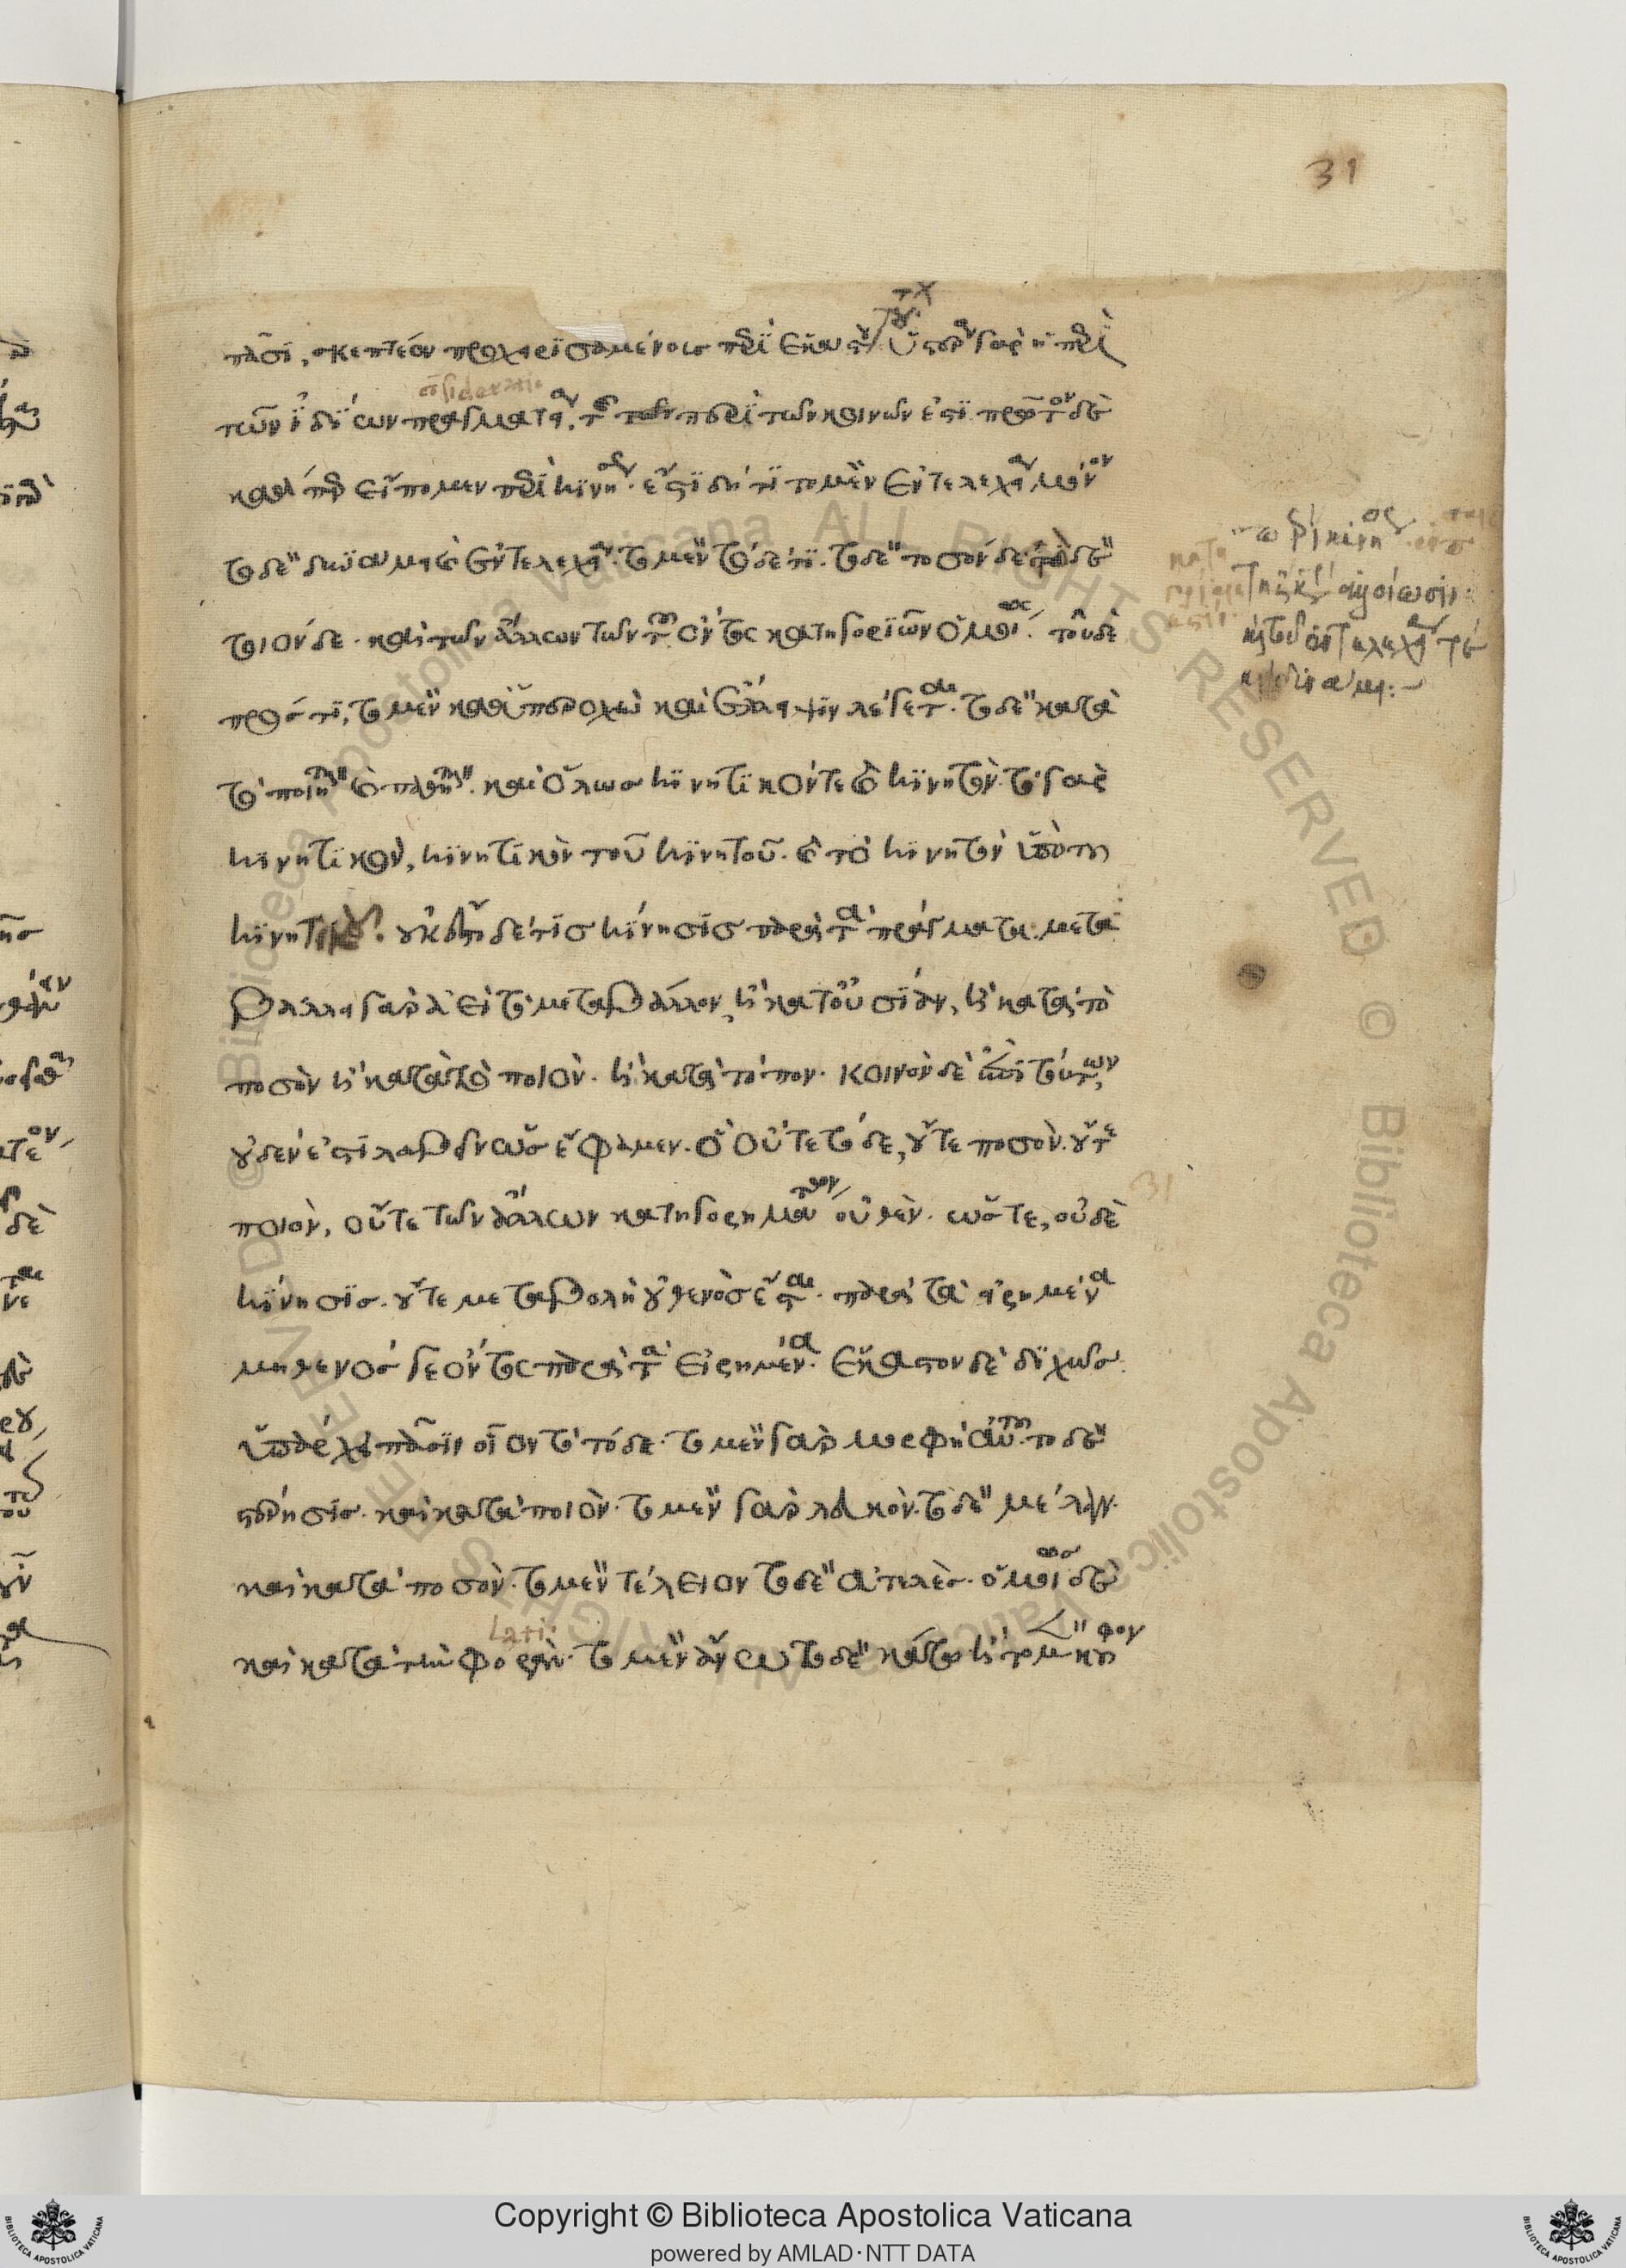 31
πᾶσι, σκεπτέον προχειρισαμένοις περὶ ἑκάστου τούτων. ὑστέρα γὰρ ἡ περὶ
τῶν ἰδίων πραγματεία, τῆς περὶ τῶν κοινῶν ἐστι. πρῶτον δὲ
καθάπερ εἴπομεν περὶ κινήσεως. ἔστι δή τι τὸ μὲν ἐντελεχείᾳ μόνον
τὸ δὲ δυνάμει καὶ ἐντελεχείᾳ. τὸ μὲν τόδε τι. τὸ δὲ τοσόνδε. τὸ δὲ
τοιόνδε. καὶ τῶν ἄλλων τῶν τοῦ ὄντος κατηγοριῶν ὁμοίως. τοῦ δὲ
πρός τι, τὸ μὲν καθ' ὑπεροχὴν καὶ ἔλλειψιν λέγεται. τὸ δὲ κατὰ
τὸ ποιητικὸν καὶ παθητικόν. καὶ ὅλως κινητικόν τε καὶ κινητόν. τὸ γὰρ
κινητικὸν, κινητικὸν τοῦ κινητοῦ. καὶ τὸ κινητὸν ὑπὸ τοῦ
κινητικοῦ. οὐκ ἔστι δέ τις κίνησις παρὰ τὰ πράγματα. μετα
βάλλει γὰρ ἀεὶ τὸ μεταβάλλον, ἢ κατ' οὐσίαν, ἢ κατὰ τὸ
ποσὸν ἢ κατὰ τὸ ποιὸν. ἢ κατὰ τόπον. κοινὸν δὲ ἐπὶ τούτων,
οὐδέν ἐστι λαβεῖν ὡς ἔφαμεν. ὃ οὔτε τόδε, οὔτε ποσὸν. οὔτε
ποιὸν, οὔτε τῶν ἄλλων κατηγορημάτων οὐθέν. ὥστε, οὐδὲ
κίνησις. οὔτε μεταβολὴ οὐθενὸς ἔσται. παρὰ τὰ εἰρημένα
μηθενός γε ὄντος παρὰ τὰ εἰρημένα. ἕκαστον δὲ διχῶς
ὑπάρχει πᾶσιν οἷον τὸ τόδε. τὸ μὲν γὰρ μορφὴ αὐτοῦ. τὸ δὲ
στέρησις. καὶ κατὰ ποιὸν. τὸ μὲν γὰρ λευκὸν. τὸ δὲ μέλαν.
καὶ κατὰ ποσὸν. τὸ μὲν τέλειον τὸ δὲ ἀτελές. ὁμοίως δὲ
καὶ κατὰ τὴν φορὰν. τὸ μὲν ἄνω τὸ δὲ κάτω ἢ τὸ μὲν κοῦφον
31
Copyright © Biblioteca Apostolica Vaticana
powered by AMLAD·NTT DATA